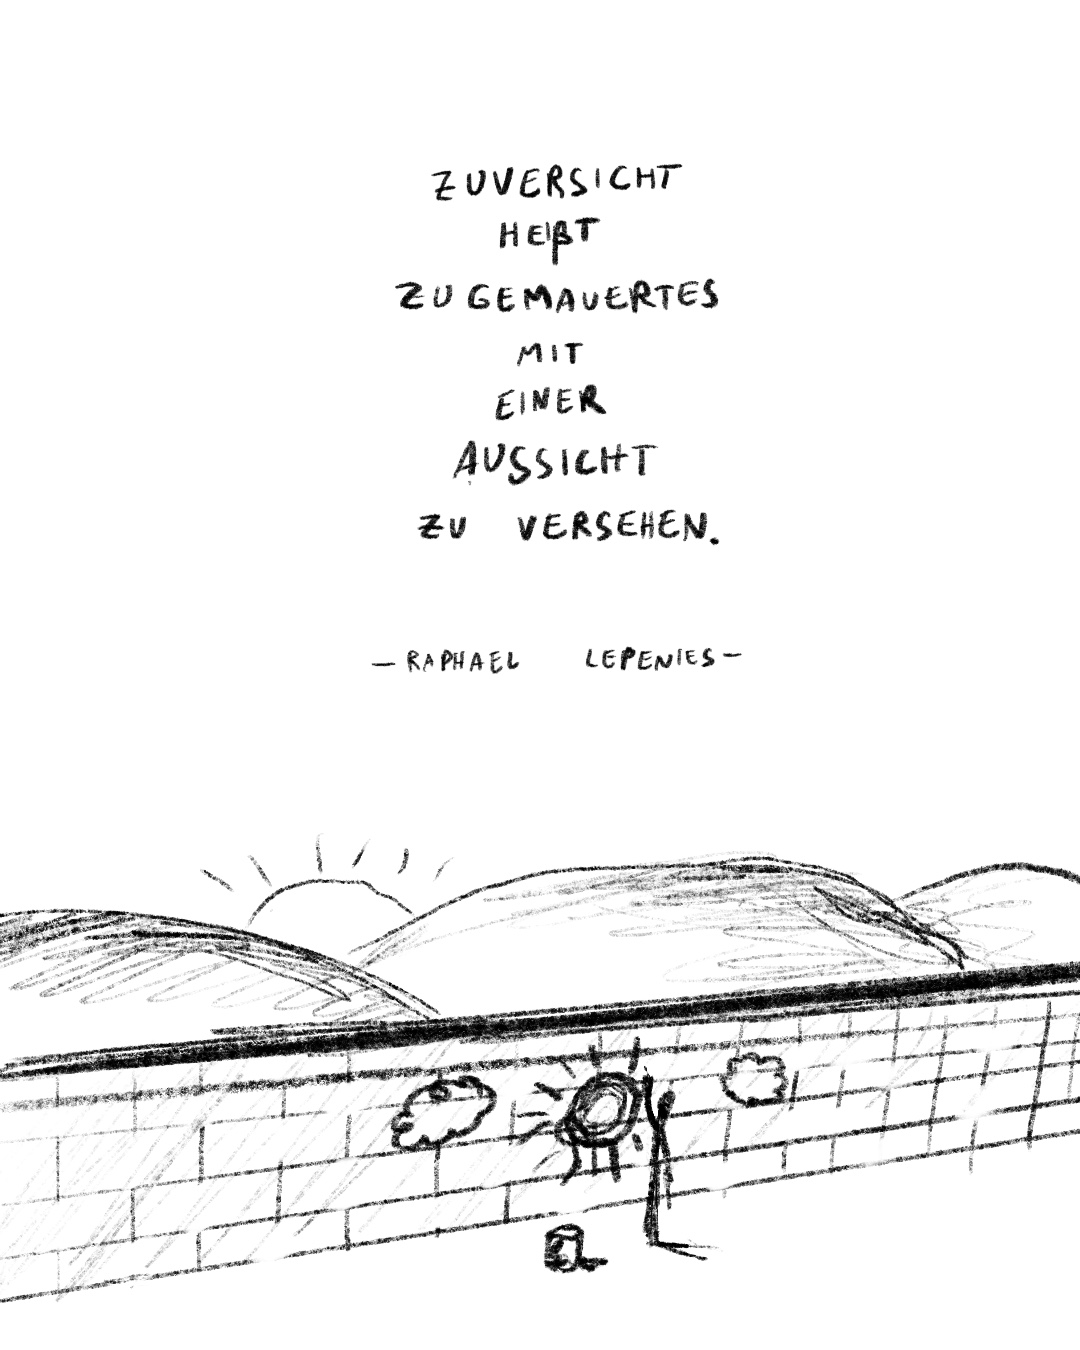 ZUVERSICHT
HEIßT
ZUGEMAUERTES
MIT
EINER
AUSSICHT
ZU VERSEHEN.
— RAPHAEL LEPENIES —